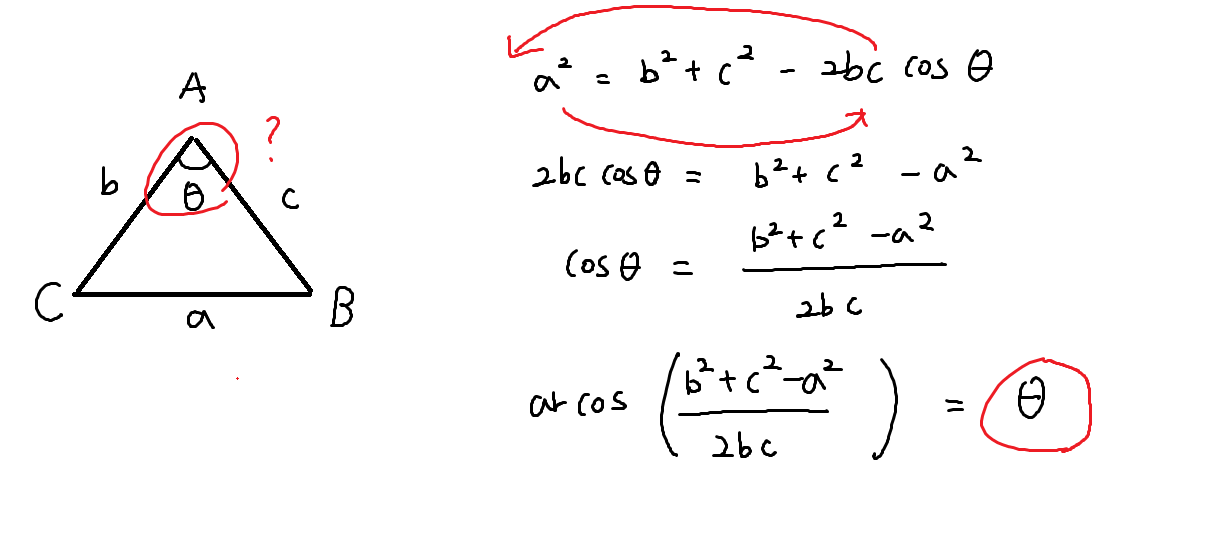 A
?
b
θ
c
C
a
B
a² = b² + c² - 2bc cos θ
2bc cosθ = b² + c² - a²
cosθ = (b² + c² - a²) / 2bc
arcos ((b² + c² - a²) / 2bc) = θ